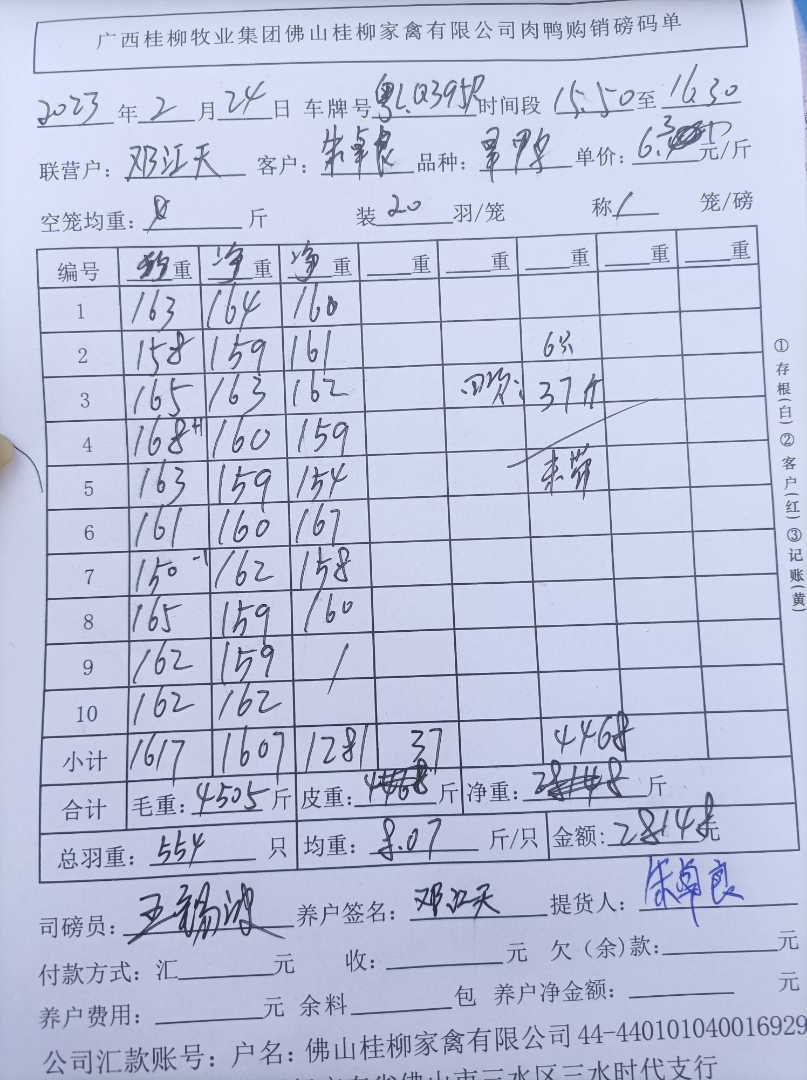 广西桂柳牧业集团佛山桂柳家禽有限公司肉鸭购销磅码单
2023年2月24日 车牌号粤L.Q395P时间段15.50至16.30
联营户：邓江天 客户：朱卓良 品种： 单价：6.3元/斤
空笼均重： 斤 装20羽/笼 称1笼/磅
编号 重 净重 净重 重 重 重 重 重
1 163 164 160
2 158 159 161 6只
3 165 163 162 37斤
4 168+1 160 159
5 163 159 154
6 161 160 167
7 150-1 162 158
8 165 159 160
9 162 159 /
10 162 162
小计 1617 1607 1281 37 4468
合计 毛重：4505斤 皮重：斤 净重：斤
总羽重：554只 均重：8.07斤/只 金额：28148元
司磅员： 养户签名：邓江天 提货人：朱卓良
付款方式：汇 元 收： 元 欠（余）款： 元
养户费用： 元 余料 包 养户净金额： 元
公司汇款账号：户名：佛山桂柳家禽有限公司 44-440101040016929
佛山市三水区三水时代支行
①存根(白)②客户(红)③记账(黄)